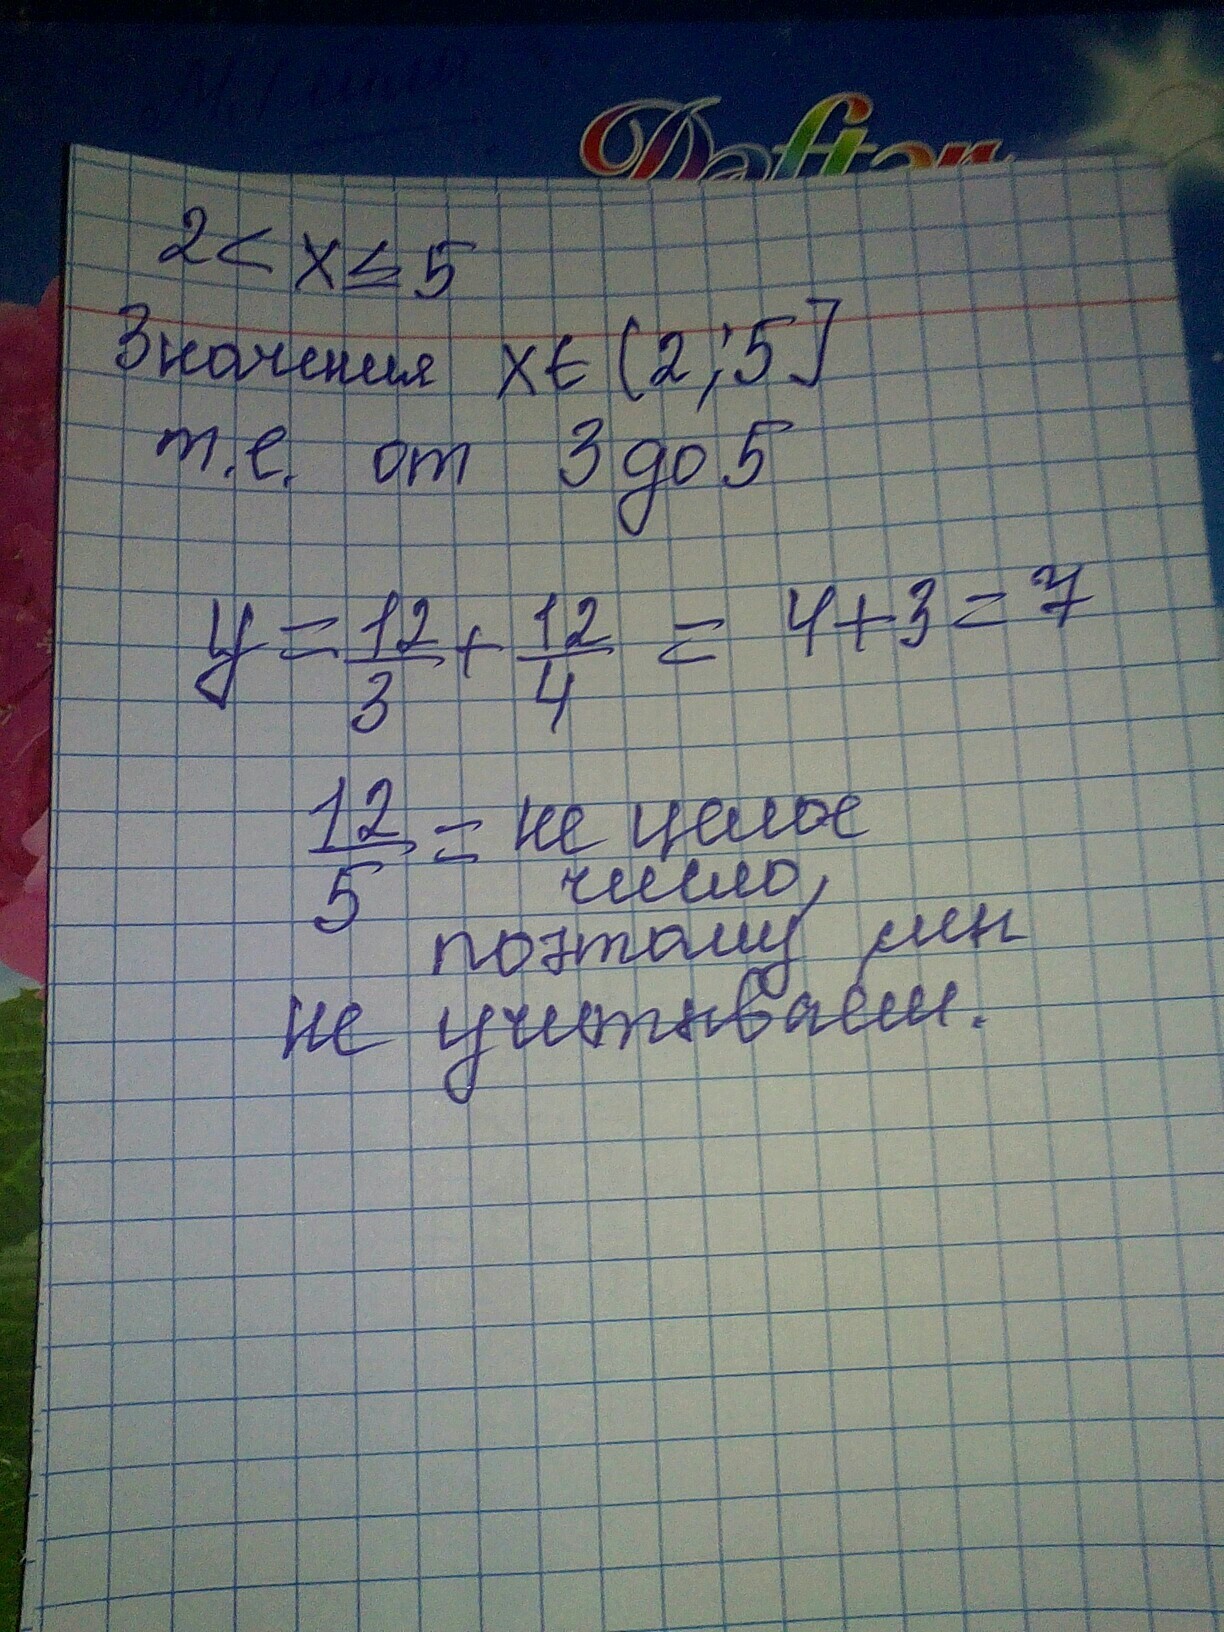 Daftar
2 < x ≤ 5
Значения x ∈ (2; 5]
т.е. от 3 до 5
y = 12/3 + 12/4 = 4 + 3 = 7
12/5 = не целое
число,
поэтому мы
не учитываем.